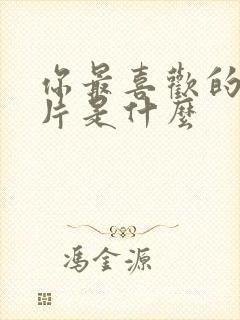 你最喜歡的
片是什麼
馮金源